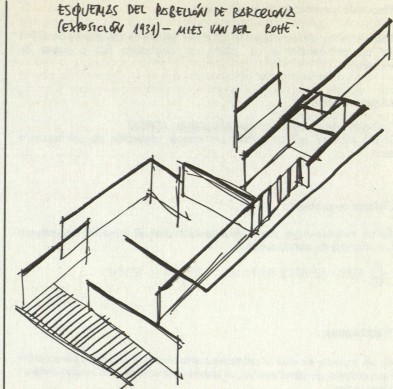 ESQUEMAS DEL PABELLÓN DE BARCELONA
(EXPOSICIÓN 1931) – MIES VAN DER ROHE.